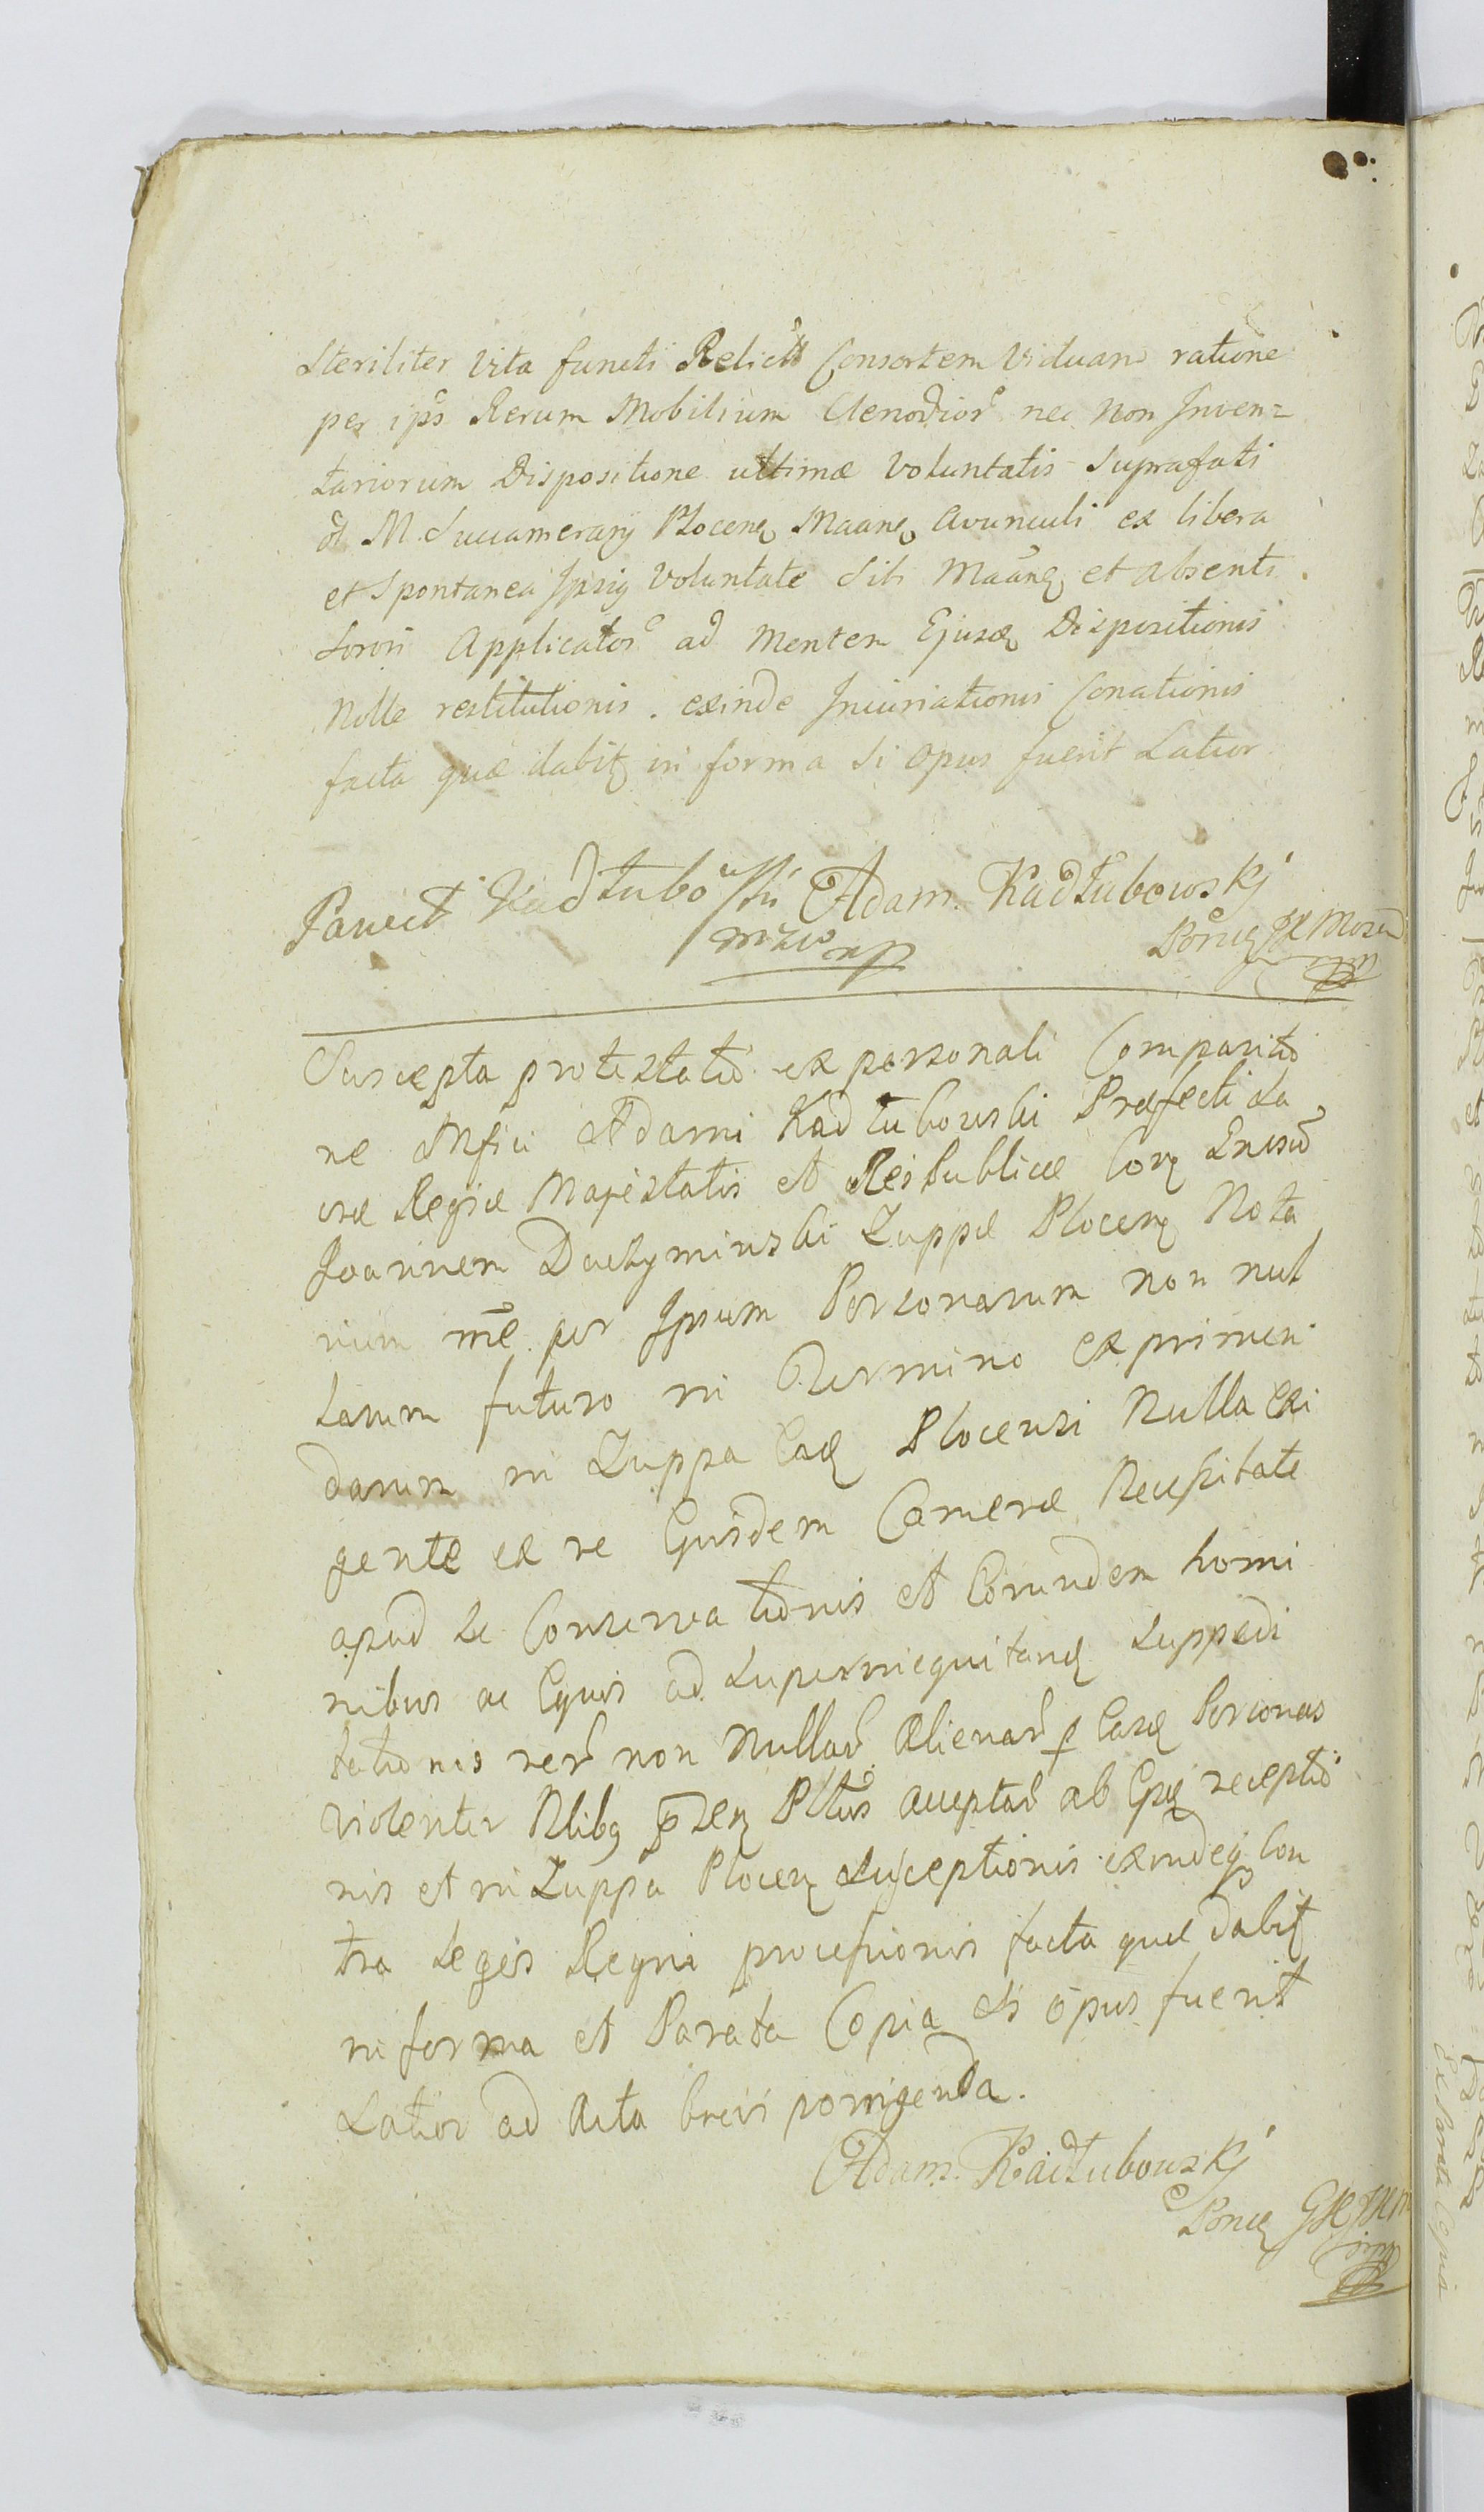 Steriliter Vita functi Relictā Consortem Viduam ratione
per ips Rerum Mobilium Clenodior nec non Inven=
tariorum Dispositione ultimæ Voluntatis Suprafati
ol M. Succamerarij Plocen Maane Avunculi ex libera
et Spontanea Ipsig Voluntate Sibi Maane et absenti
Sorori Applicator ad mentem Ejusd Dispositionis
Nolle restitutionis. exinde Iniuriationis Conationis
facta quæ dabit in forma Si opus fuerit Latior
Paweł Kadłubowski Adam Kadłubowskj
mzw mp
Suscepta protestatio ex personali Comparitio
ne Mfici Adami Kadłubowski Præfecti Sa
cræ Regiæ Majestatis et Reipublicæ Cor
Joannem Duchyminski Zuppæ Plocen Nota
rium me per Ipsum Personarum non nul
larum futuro in Termino exprimen
darum in Zuppa Ead Plocensi Nulla exi
gente ex re Ejusdem Cameræ Necessitate
apud Se Conservationis et Eorundem homi
nibus ac Equis ad Superinequitand Suppedi
tationis rer non Nullar Alienar p Easd Personas
violenter acceptar ab Eisd receptio
nis et in Zuppa Plocen Susceptionis exindeq Con
tra Leges Regni processionis facta quæ dabit
in forma et Parata Copia Si opus fuerit
Latior ad Acta brevi porrigenda.
Adam Kadłubowskj